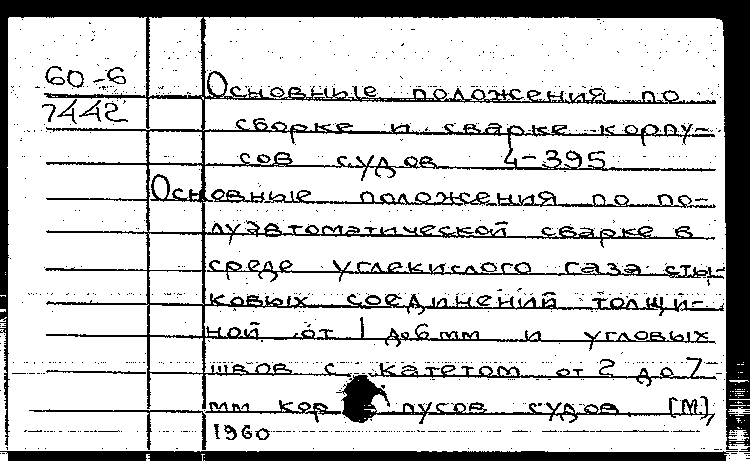 60-6
7442
Основные положения по
сборке и сварке корпу-
сов судов 4-395
Основные положения по по-
луавтоматической сварке в
среде углекислого газа сты-
ковых соединений толщи-
ной от 1 до 6 мм и угловых
швов с катетом от 2 до 7
мм корпусов судов. [М],
1960